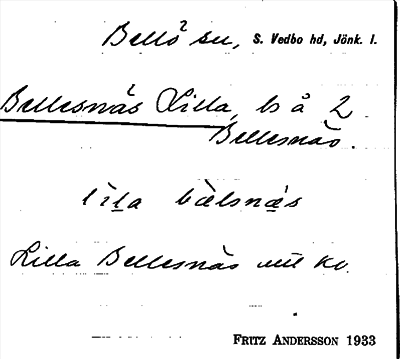 Bellö sn, S. Vedbo hd, Jönk. l.
Bellesnäs Lilla, bs å 2
Bellesnäs.
lìḻa bälsnä̱s
Lilla Bellesnäs utt kv.
FRITZ ANDERSSON 1933